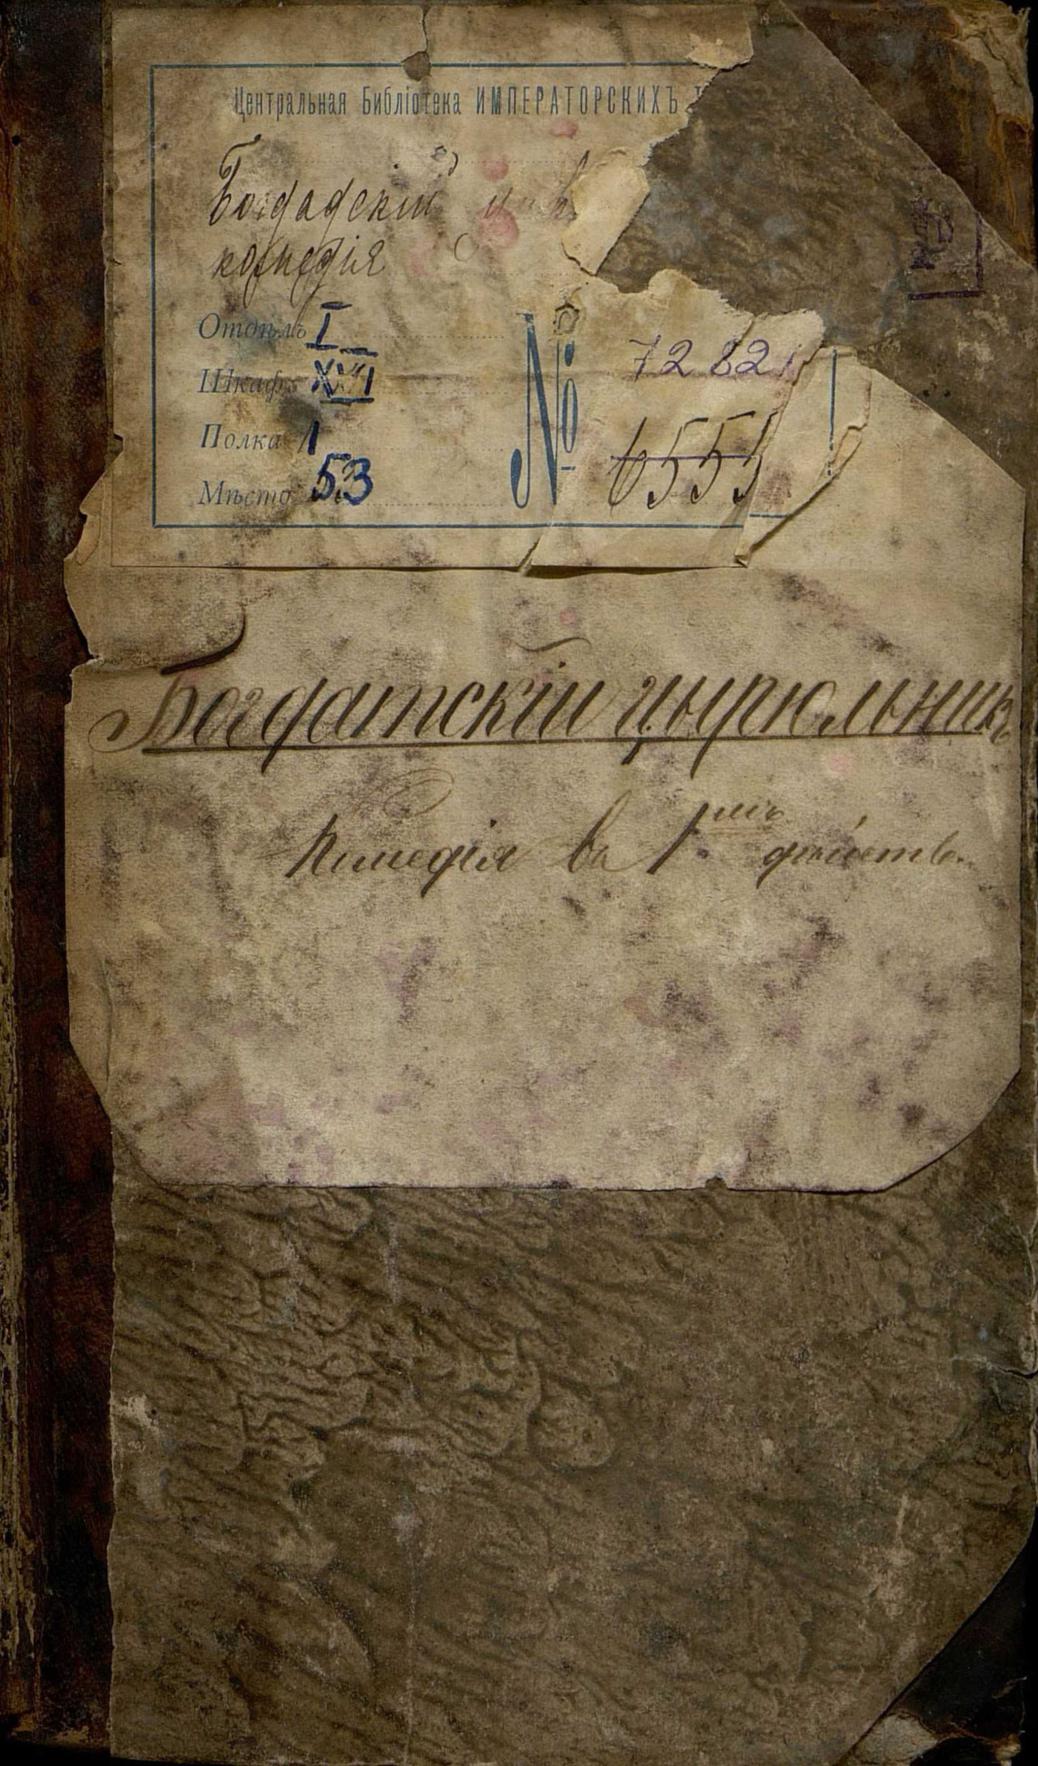 Центральная Библіотека ИМПЕРАТОРСКИХЪ
Богдадскій
комедія
Отдѣлъ I
Шкафъ XVI
Полка 1
Мѣсто 53
№ 72821
6555
Богдатскій цырюльникъ
Комедія въ 1мъ дѣйств.